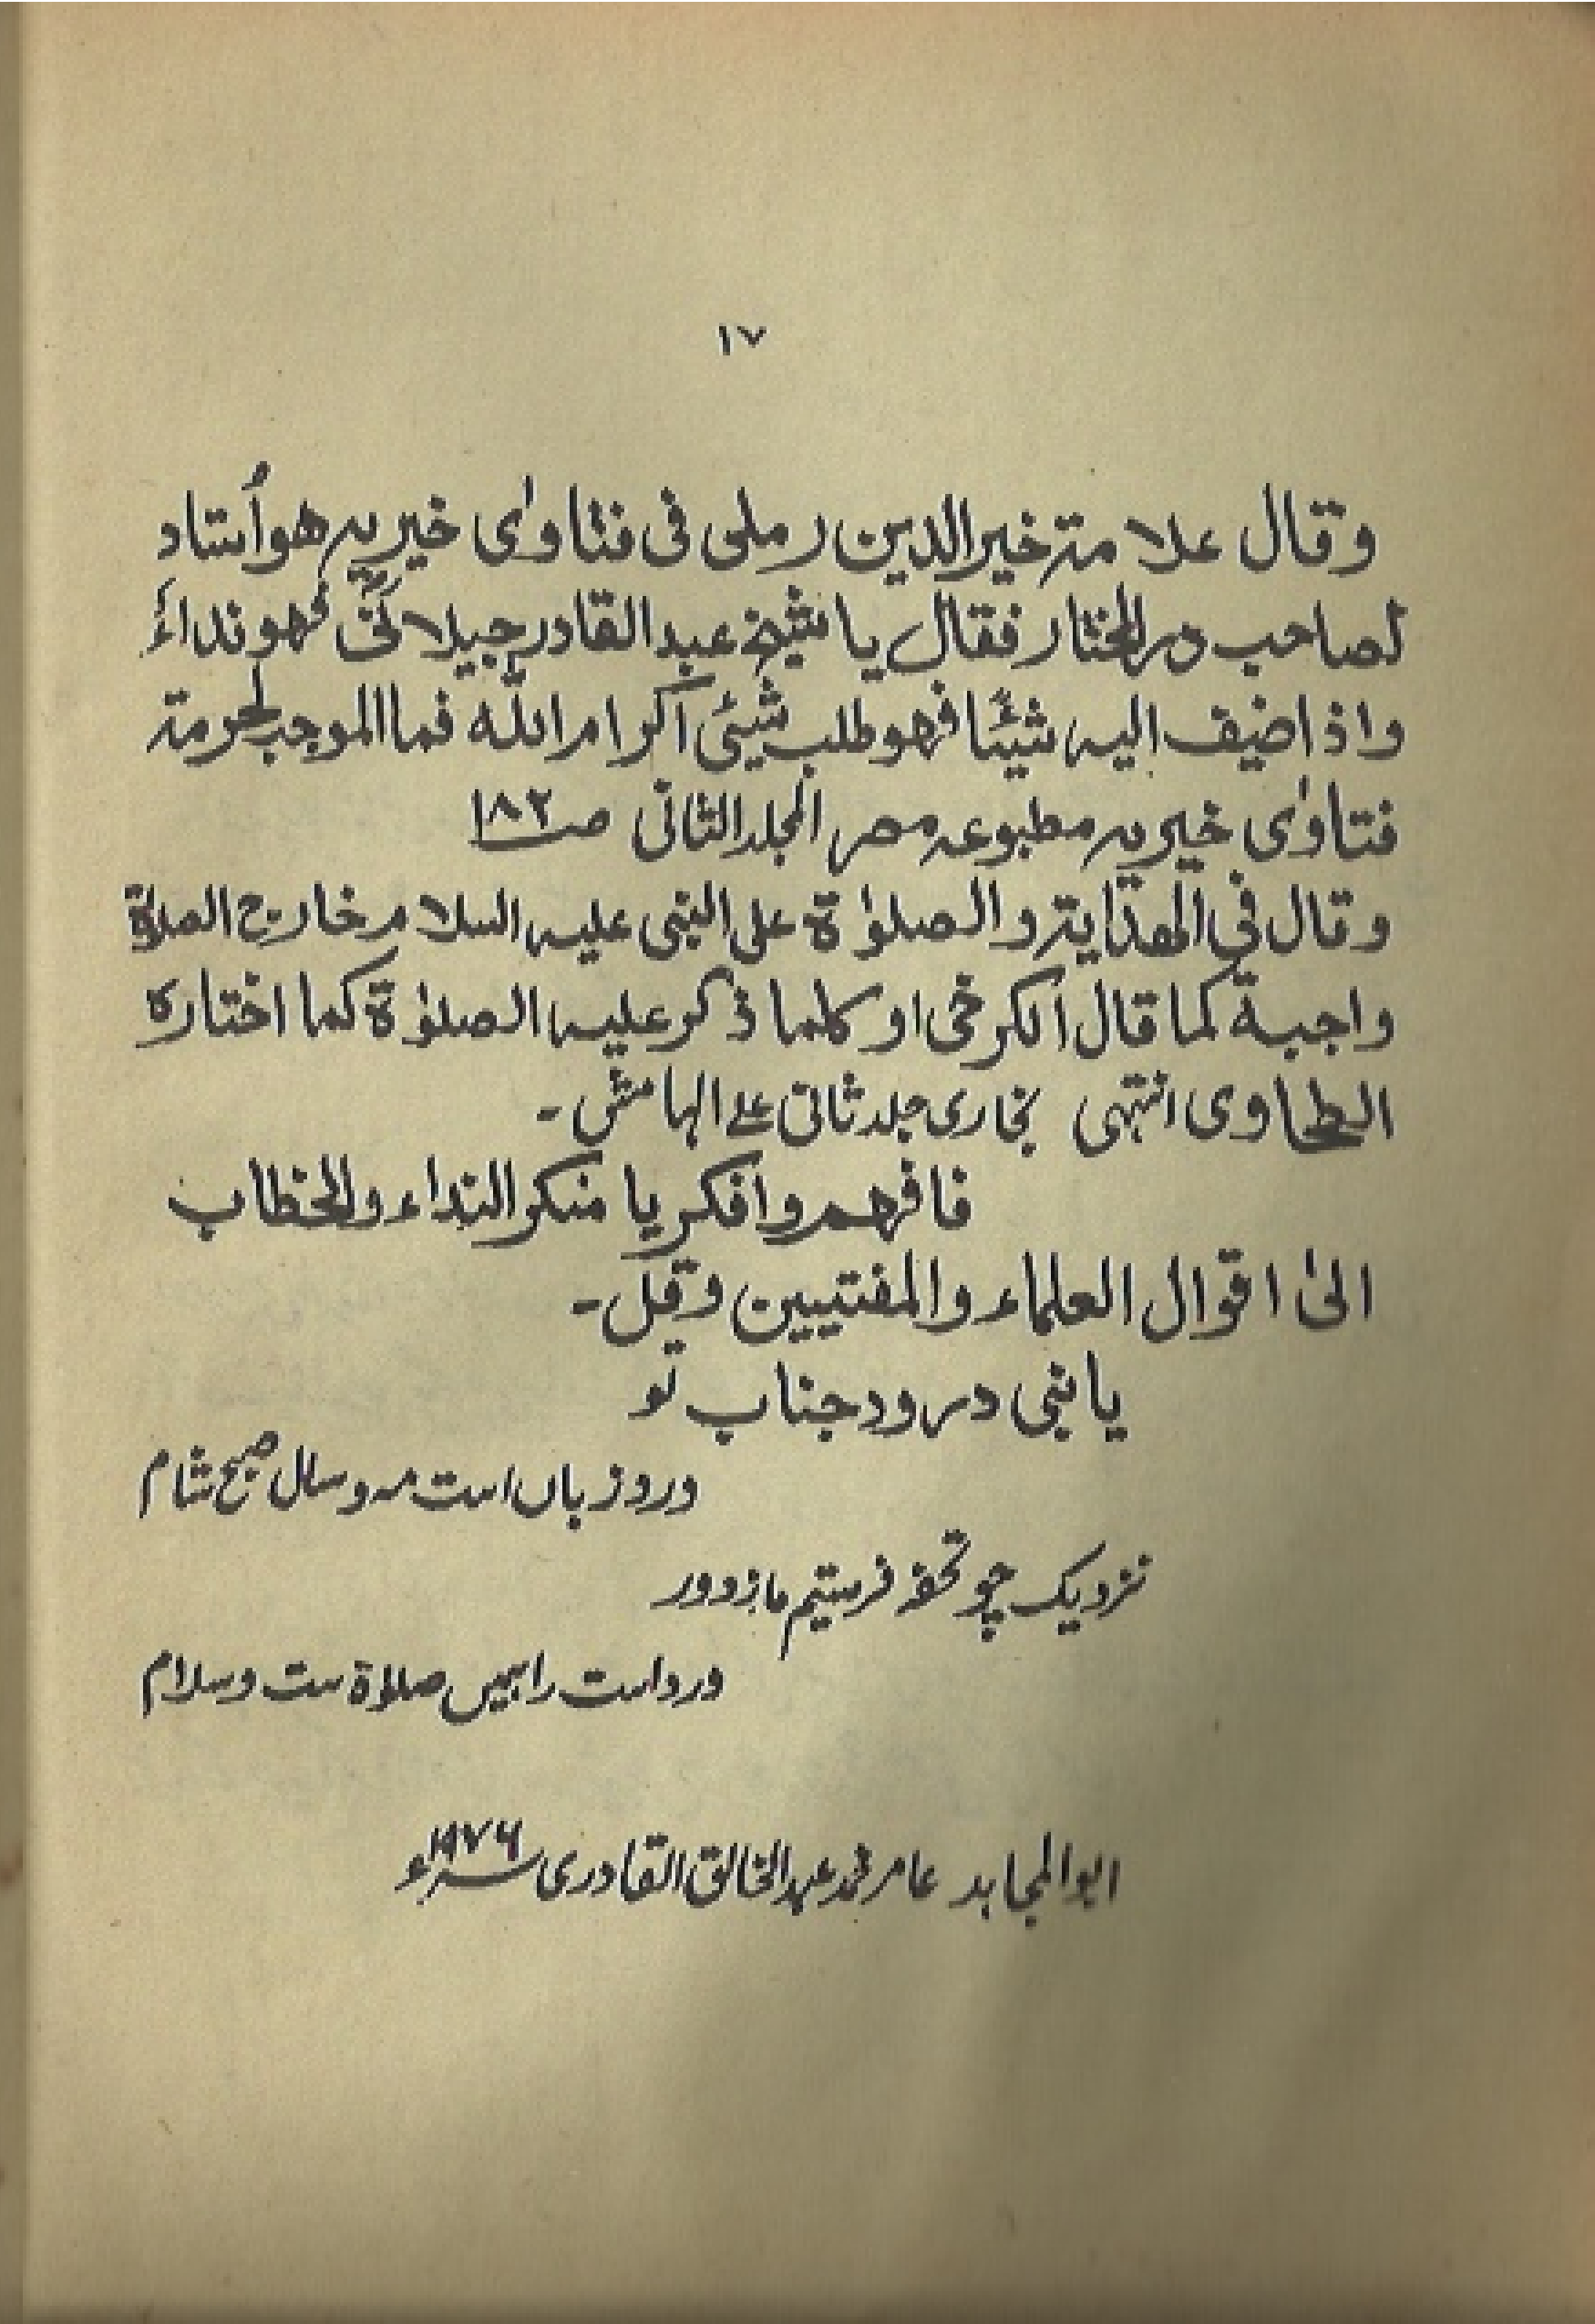 ١٧
وقال علامة خير الدين رملى فى فتاوٰى خيريه هو اُستاد
لصاحب در المختار فقال يا شيخ عبد القادر جيلانىؓ فهو نداءً
واذ اضيف اليه شيئًا فهو طلب شيئ اكرام الله فما الموجب لحرمة
فتاوٰى خيريه مطبوعه مصر المجلد الثانى صـ ١٨٢
وقال فى الهداية والصلوٰة على النبى عليه السلام خارج الصلوٰة
واجبة كما قال الكرخى او كلما ذكر عليه الصلوٰة كما اختاره
الطحاوى انتهى بخارى جلد ثانى علے الهامش ـ
فافهم وافكر يا منكر النداء والخطاب
الىٰ اقوال العلماء والمفتيين وقل ـ
يا نبى درود جناب تو
ورد زباں است مہ و سال صبح شام
نزدیک چو تحفہ فرستیم ما ز دور
در داست را ہمیں صلوٰة ست و سلام
ابو المجاہد عامر محمد عبد الخالق القادری ١٩٧٦ء